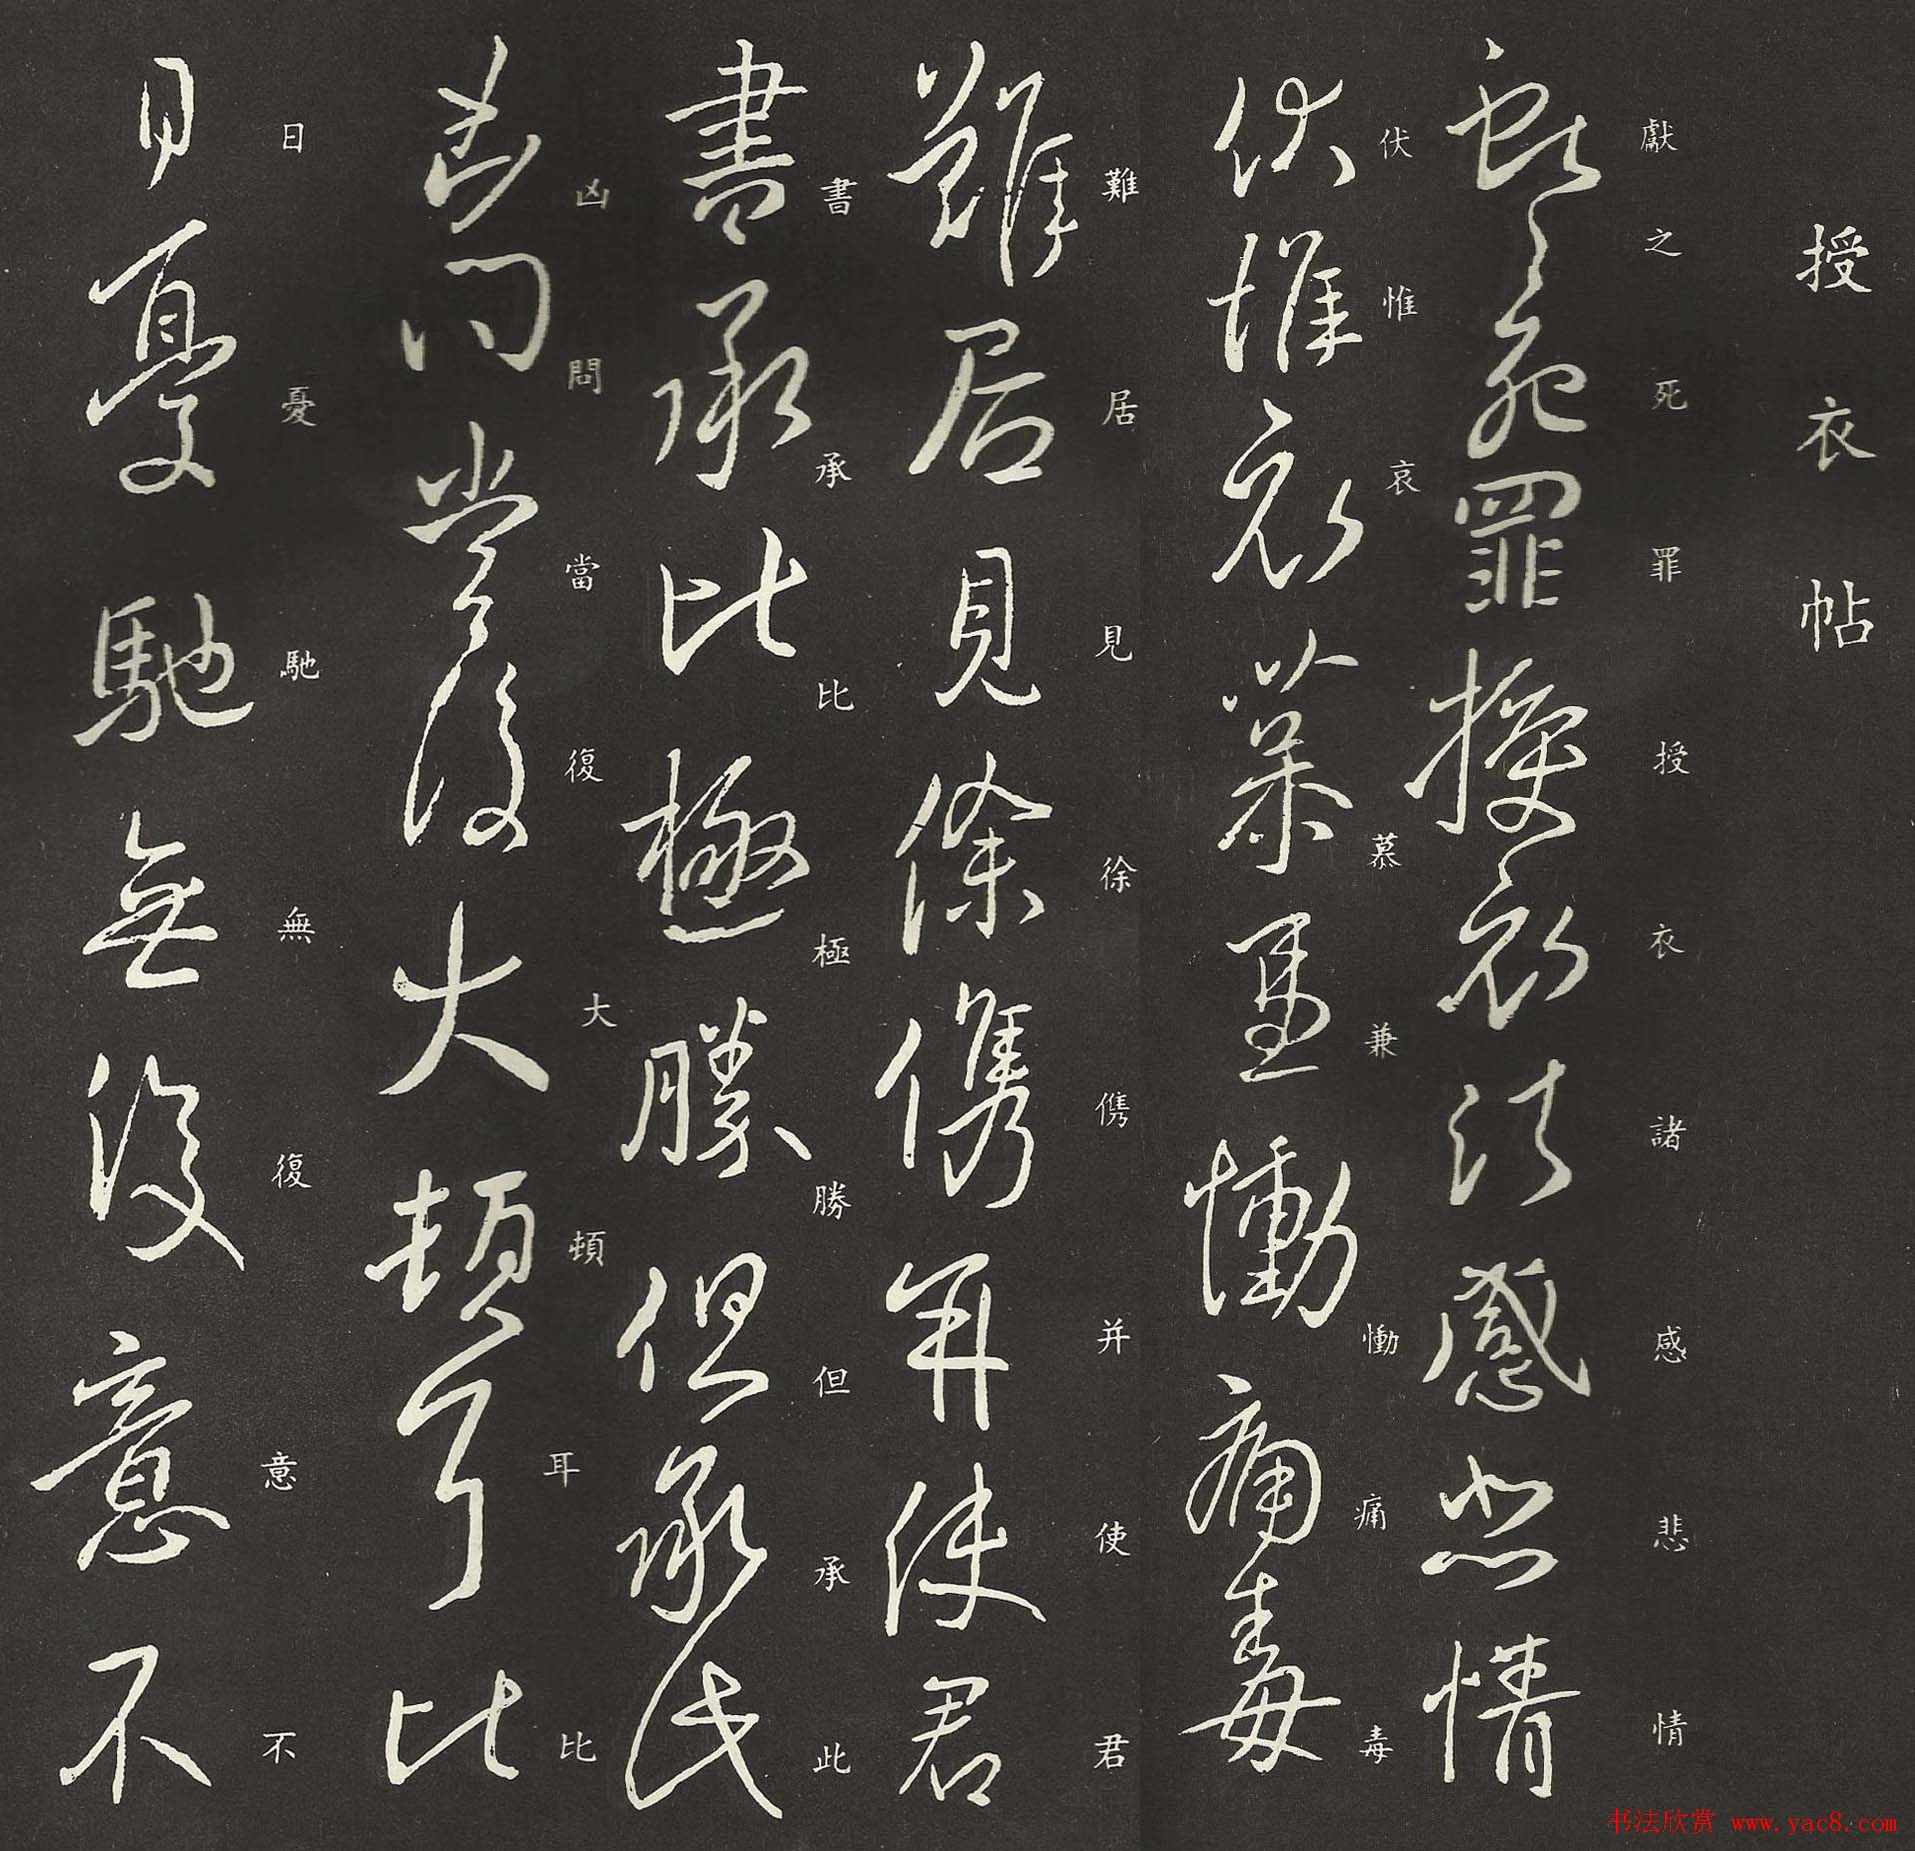 授衣帖
獻之死罪授衣諸感悲情
伏惟哀慕兼慟痛毒
難居見徐儁并使君
書承比極勝但承此
凶問當復大頓耳比
日憂馳無復意不
书法欣赏 www.yac8.com